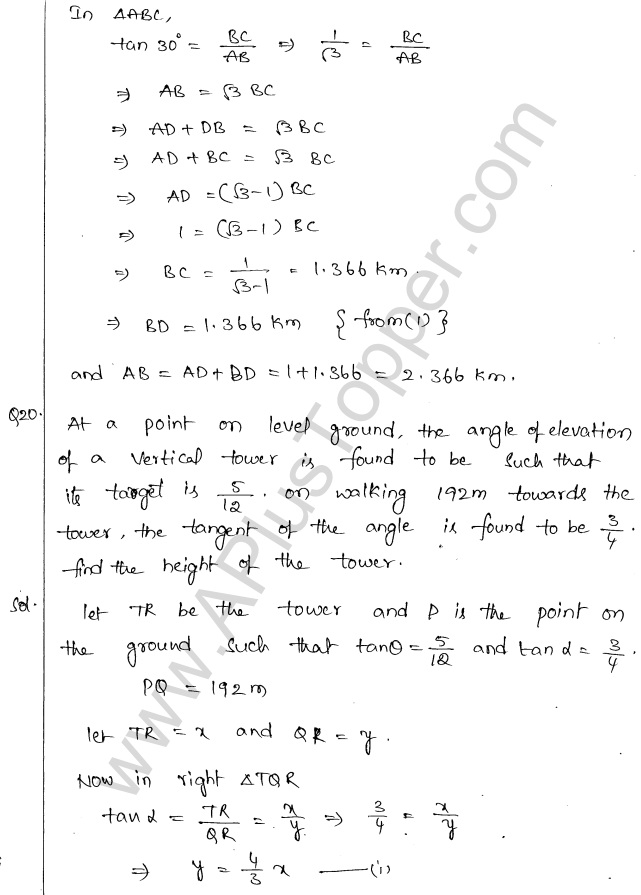 In ΔABC,
tan 30° = BC/AB ⇒ 1/√3 = BC/AB
⇒ AB = √3 BC
⇒ AD + DB = √3 BC
⇒ AD + BC = √3 BC
⇒ AD = (√3-1) BC
⇒ 1 = (√3-1) BC
⇒ BC = 1/√3-1 = 1.366 Km.
⇒ BD = 1.366 Km {from(1)}
and AB = AD + BD = 1+1.366 = 2.366 Km.
Q20. At a point on level ground, the angle of elevation
of a vertical tower is found to be such that
its target is 5/12. on walking 192m towards the
tower, the tangent of the angle is found to be 3/4.
find the height of the tower.
Sol. let TR be the tower and P is the point on
the ground such that tanθ = 5/12 and tan α = 3/4.
PQ = 192m
let TR = x and QR = y.
Now in right ΔTQR
tan α = TR/QR = x/y ⇒ 3/4 = x/y
⇒ y = 4/3 x —(i)
www.APlusTopper.com